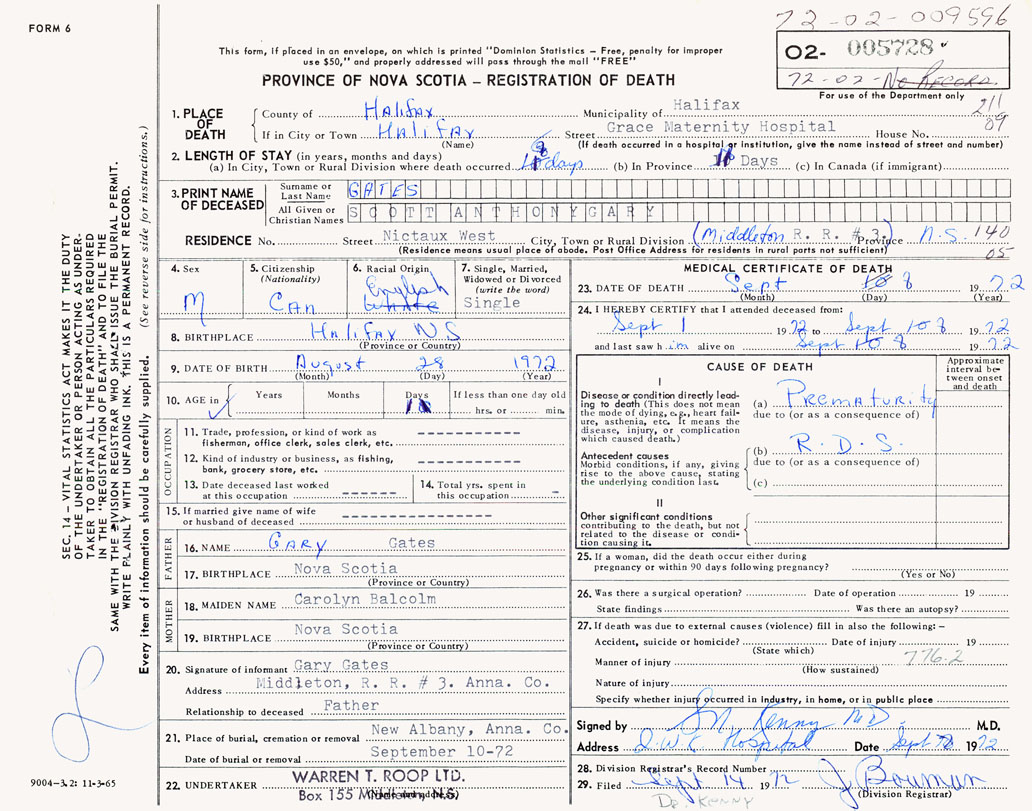 FORM 6
72-02-009596
02- 005728
72-02-No Record.
For use of the Department only
This form, if placed in an envelope, on which is printed "Dominion Statistics – Free, penalty for improper
use $50," and properly addressed will pass through the mail "FREE"
PROVINCE OF NOVA SCOTIA – REGISTRATION OF DEATH
1. PLACE OF DEATH
County of Halifax Municipality of Halifax 211
If in City or Town Halifax Street Grace Maternity Hospital House No. 09
(Name) (If death occurred in a hospital or institution, give the name instead of street and number)
2. LENGTH OF STAY (in years, months and days)
(a) In City, Town or Rural Division where death occurred days (b) In Province 11 Days (c) In Canada (if immigrant)
3. PRINT NAME OF DECEASED
Surname or Last Name GATES
All Given or Christian Names SCOTT ANTHONY GARY
RESIDENCE No. Street Nictaux West City, Town or Rural Division (Middleton R. R. # 3.) Province N.S. 140
(Residence means usual place of abode. Post Office Address for residents in rural parts not sufficient) 05
4. Sex M
5. Citizenship (Nationality) CAN
6. Racial Origin English White
7. Single, Married, Widowed or Divorced (write the word) Single
8. BIRTHPLACE Halifax N.S
(Province or Country)
9. DATE OF BIRTH August 28 1972
(Month) (Day) (Year)
10. AGE in Years Months Days If less than one day old
hrs. or min.
OCCUPATION
11. Trade, profession, or kind of work as
fisherman, office clerk, sales clerk, etc. -----------
12. Kind of industry or business, as fishing,
bank, grocery store, etc. -----------
13. Date deceased last worked
at this occupation ------
14. Total yrs. spent in
this occupation -
15. If married give name of wife
or husband of deceased -------------
FATHER
16. NAME GARY Gates
17. BIRTHPLACE Nova Scotia
(Province or Country)
MOTHER
18. MAIDEN NAME Carolyn Balcolm
19. BIRTHPLACE Nova Scotia
(Province or Country)
20. Signature of informant Gary Gates
Address Middleton, R. R. # 3. Anna. Co.
Relationship to deceased Father
21. Place of burial, cremation or removal New Albany, Anna. Co.
Date of burial or removal September 10-72
22. UNDERTAKER WARREN T. ROOP LTD.
Box 155 N.S.
MEDICAL CERTIFICATE OF DEATH
23. DATE OF DEATH Sept 10 8 1972
(Month) (Day) (Year)
24. I HEREBY CERTIFY that I attended deceased from:
Sept 1 1972 to Sept 10 8 1972
and last saw him alive on Sept 10 8 1972
CAUSE OF DEATH
Approximate interval between onset and death
I
Disease or condition directly lead-
ing to death (This does not mean
the mode of dying, e.g., heart fail-
ure, asthenia, etc. It means the
disease, injury, or complication
which caused death.)
(a) Prematurity
due to (or as a consequence of)
Antecedent causes
Morbid conditions, if any, giving
rise to the above cause, stating
the underlying condition last.
(b) R.D.S.
due to (or as a consequence of)
(c)
II
Other significant conditions
contributing to the death, but not
related to the disease or condi-
tion causing it.
25. If a woman, did the death occur either during
pregnancy or within 90 days following pregnancy?
(Yes or No)
26. Was there a surgical operation? Date of operation 19
State findings Was there an autopsy?
27. If death was due to external causes (violence) fill in also the following: –
Accident, suicide or homicide? Date of injury 19
(State which)
Manner of injury 776.2
(How sustained)
Nature of injury
Specify whether injury occurred in industry, in home, or in public place
Signed by Kenny MD M.D.
Address Hospital Date Sept 1972
28. Division Registrar's Record Number
29. Filed Sept 14 1972 J Bowman
(Division Registrar)
Dr Kenny
SEC. 14 – VITAL STATISTICS ACT MAKES IT THE DUTY
OF THE UNDERTAKER OR PERSON ACTING AS UNDER-
TAKER TO OBTAIN ALL THE PARTICULARS REQUIRED
IN THE "REGISTRATION OF DEATH" AND TO FILE THE
SAME WITH THE DIVISION REGISTRAR WHO SHALL ISSUE THE BURIAL PERMIT.
WRITE PLAINLY WITH UNFADING INK. THIS IS A PERMANENT RECORD.
Every item of information should be carefully supplied. (See reverse side for instructions.)
9004–3.2: 11-3-65